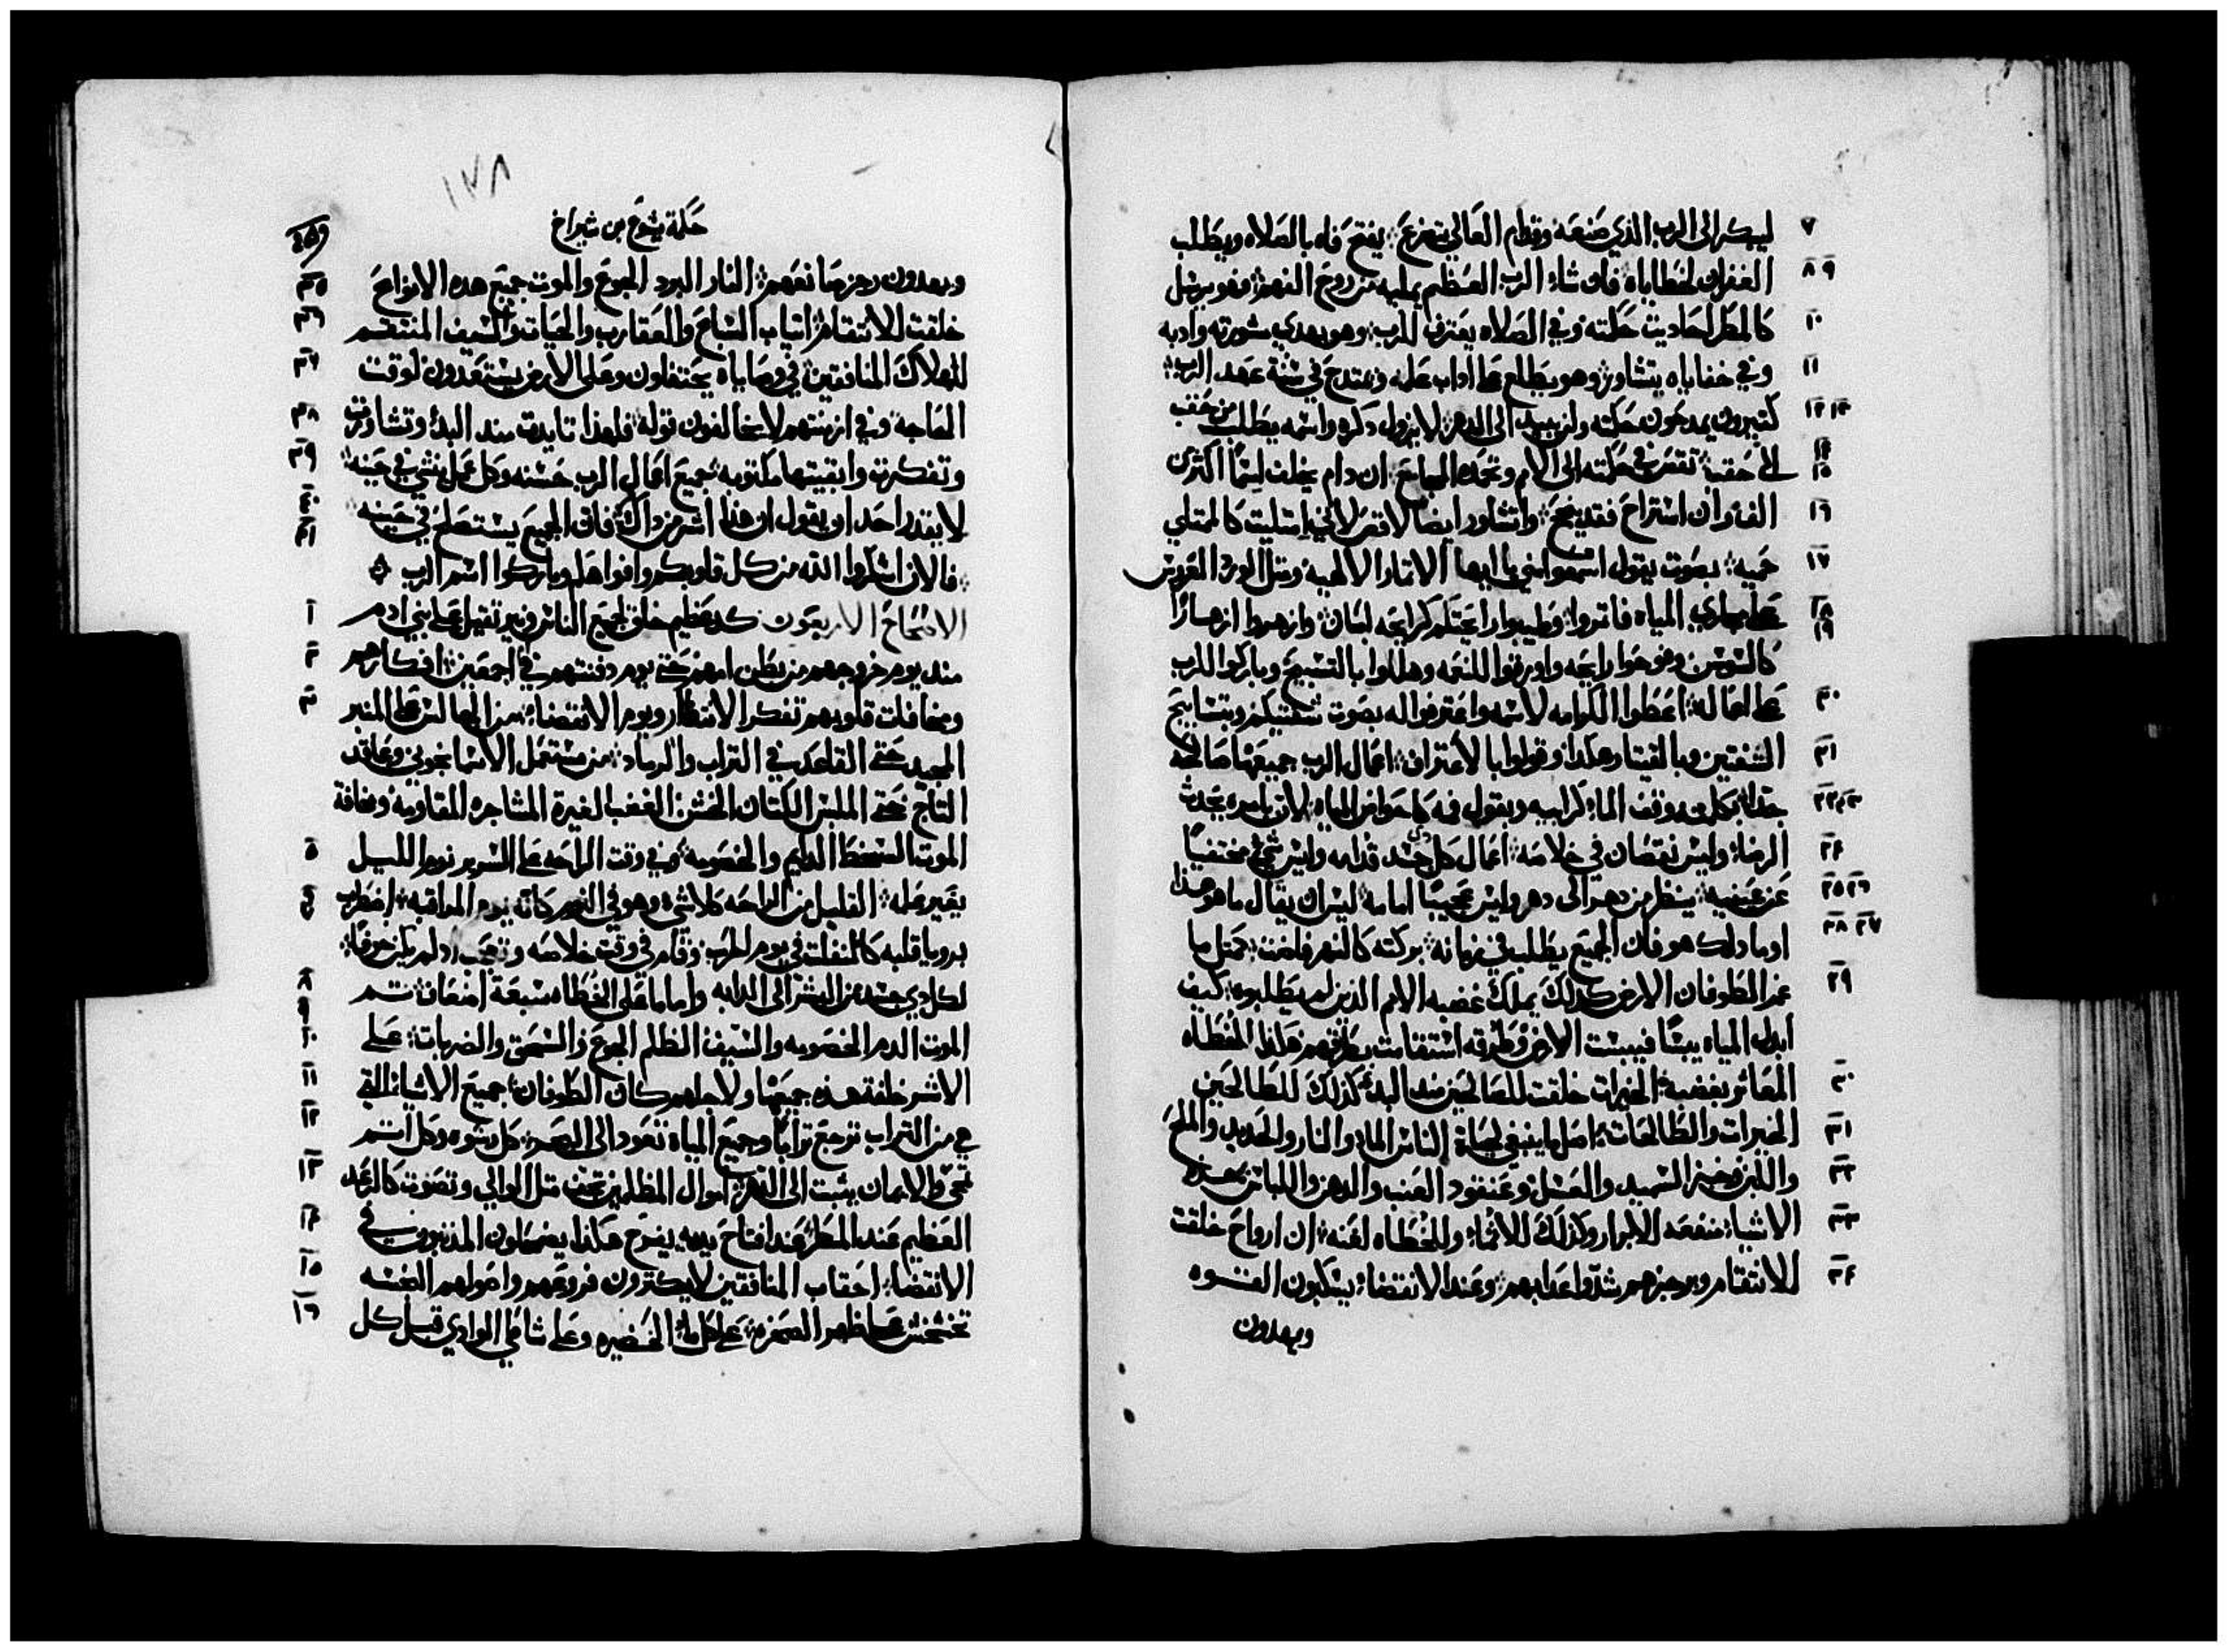 ليبكر الى الرب الذي صنعه وقدام العالي يتضرع ۞ يفتح فاه بالصلاه ويطلب ٧
الغفران لخطاياه فان شاء الرب العظيم يمليه من روح الفهم ۞ فهو يرسل ٨ ٩
كالمطر احاديث حكمته وفي الصلاه يعترف للرب ۞ وهو يهدي مشورته وادبه ١٠
وفي خفاياه يتشاور ۞ وهو يطلع على اداب علمه ويمتدح في سنة عهد الرب ۞ ١١
كتيرون يمدحون حكمته ولن يبيد الى الدهر ۞ لا يزول ذكره واسمه يطلب من حقب ١٢ ١٣
الى حقب ۞ تقص في حكمته الى الامم وتحمده المجامع ۞ ان دام يخلف اسمًا اكثر من ١٤ ١٥
الف وان استراح فقد نجح ۞ واتشاور ايضا لاقص لاني امتليت كالممتلي ١٦
حميه ۞ بصوت يقول اسمعوا مني يا ايها الاتمار الالهيه ومتل الورد المغروس ١٧
على مجاري المياه فاتمروا ۞ وطيبوا رايحتكم كرايحه لبنان ۞ وازهروا ازهارًا ١٨ ١٩
كالسوسن وفوحوا رايحه واورقوا للنعمه وهللوا بالتسبيح وباركوا للرب
على اعماله ۞ اعطوا الكرامه لاسمه واعترفوا له بصوت شفتيكم وبتسابيح ٢٠
الشفتين وبالقيتار وهكذا وقولوا بالاعتراف ۞ اعمال الرب جميعها صالحه ٢١
جدًا ۞ بكلمته وقف الماء كرابيه وبقول فمه كاحواض المياه ۞ لان بامره يحدث ٢٢ ٢٣
الرضاء وليس نقصان في خلاصه ۞ اعمال كل ذي جسد قدامه وليس شي مختفيًا ٢٤
عن عينيه ۞ ينظر من دهر الى دهر وليس عجيبًا امامه ۞ ليس ان يقال ما هو هذا ٢٥ ٢٦
او ما ذلك هو فان الجميع يطلب في زمانه ۞ بركته كالنهر فاضت ۞ كمتل ما ٢٧ ٢٨
غمر الطوفان الارض كذلك يملك غضبه الامم الذين لم يطلبوه ۞ كيف ٢٩
ابدل المياه يبسًا فيبست الارض وطرقه استقامت بطرقهم هكذا للخطاه
المعاثر بغضبه ۞ الخيرات خلقت للصالحين منذ البدء كذلك للطالحين ٣٠
الخيرات والطالحات ۞ اصل ما ينبغي لحياة الناس الماء والنار والحديد والملح ٣١
واللبن وخبز السميد والعسل وعنقود العنب والدهن واللباس ۞ هذه ٣٢
الاشياء منفعه للابرار وكذلك للاثماء وللخطاه لعنه ۞ ان ارواح خلقت ٣٣
للانتقام وبرجزهم شدّوا عذابهم ۞ وعند الانقضاء يسكبون القوه ٣٤
ويهدون
١٧٨
حكمة يشوع بن شيراخ
ويهدون رجز صانعهم ۞ النار البرد الجوع والموت جميع هذه الانواع ٣٥
خلقت للانتقام ۞ انياب السباع والعقارب والحيات والسيف المنتقم ٣٦
لهلاك المنافقين ۞ في وصاياه يحتفلون وعلى الارض يستعدون لوقت ٣٧
الحاجه وفي ازمنتهم لا يخالفون قوله ۞ فلهذا تايدت منذ البدء وتشاورت ٣٨
وتفكرت وابقيتها مكتوبه ۞ جميع اعمال الرب حسنه وكل عمل ينشي في حينه ۞ ٣٩
لا يقدر احد ان يقول ان هذا اشر من ذاك ۞ فان الجميع يستصلح في حينه ۞ ٤٠
فالان اشكروا الله من كل قلوبكم وافواهكم وباركوا اسم الرب ۞ ٤١
الاصحاح الاربعون كد عظيم خلق لجميع الناس ونير تقيل على بني ادم ١
منذ يوم خروجهم من بطن امهم حتى يوم دفنتهم في ام اجمعين ۞ افكارهم ٢
ومخافات قلوبهم تفكر الانتظار ويوم الانقضاء ۞ من الجالس على المنبر ٣
المجيد حتى القاعد في التراب والرماد ۞ من مستعمل الاسمانجوني وعاقد
التاج حتى الملبس الكتان الخشن ۞ الغضب الغيرة المشاجره المقاومه ومخافة
الموت السخط الدايم والخصومه ۞ وفي وقت الراحه على السرير نوم الليل ٥
يغير علمه ۞ القليل من الراحه كلا شي وهو في النوم كانه يوم المراقبه ۞ اضطرب ٦
برويا قلبه كالمنفلت في يوم الحرب وقام في وقت خلاصه وتعجب اذ لم يكن خوفًا ۞
لكل ذي جسد من البشر الى الدابه واما ما على الخطاه سبعة اضعاف ۞ تم ٨
الموت الدم الخصومه والسيف الظلم الجوع والسحق والضربات ۞ على ٩ ١٠
الاشر خلقة هذه جميعها ولاجلهم كان الطوفان ۞ جميع الاشياء التي ١١
هي من التراب ترجع ترابًا وجميع المياه تعود الى البحر ۞ كل رشوه وكل اتم ١٢
تمحى والايمان يثبت الى الدهر ۞ اموال المظلمين تجف متل الوادي وتصوت كالرعد ١٣
العظيم عند المطر ۞ عند افتاح يديه يفرح هكذا يضمحلون المذنبون في ١٤
الانقضاء ۞ احقاب المنافقين لا يكثرون فروعهم واصولهم النجسه ١٥
تخشخش على ظهر الصخره ۞ على كل ماء الخضيره وعلى شاطي الوادي قبل كل ١٦